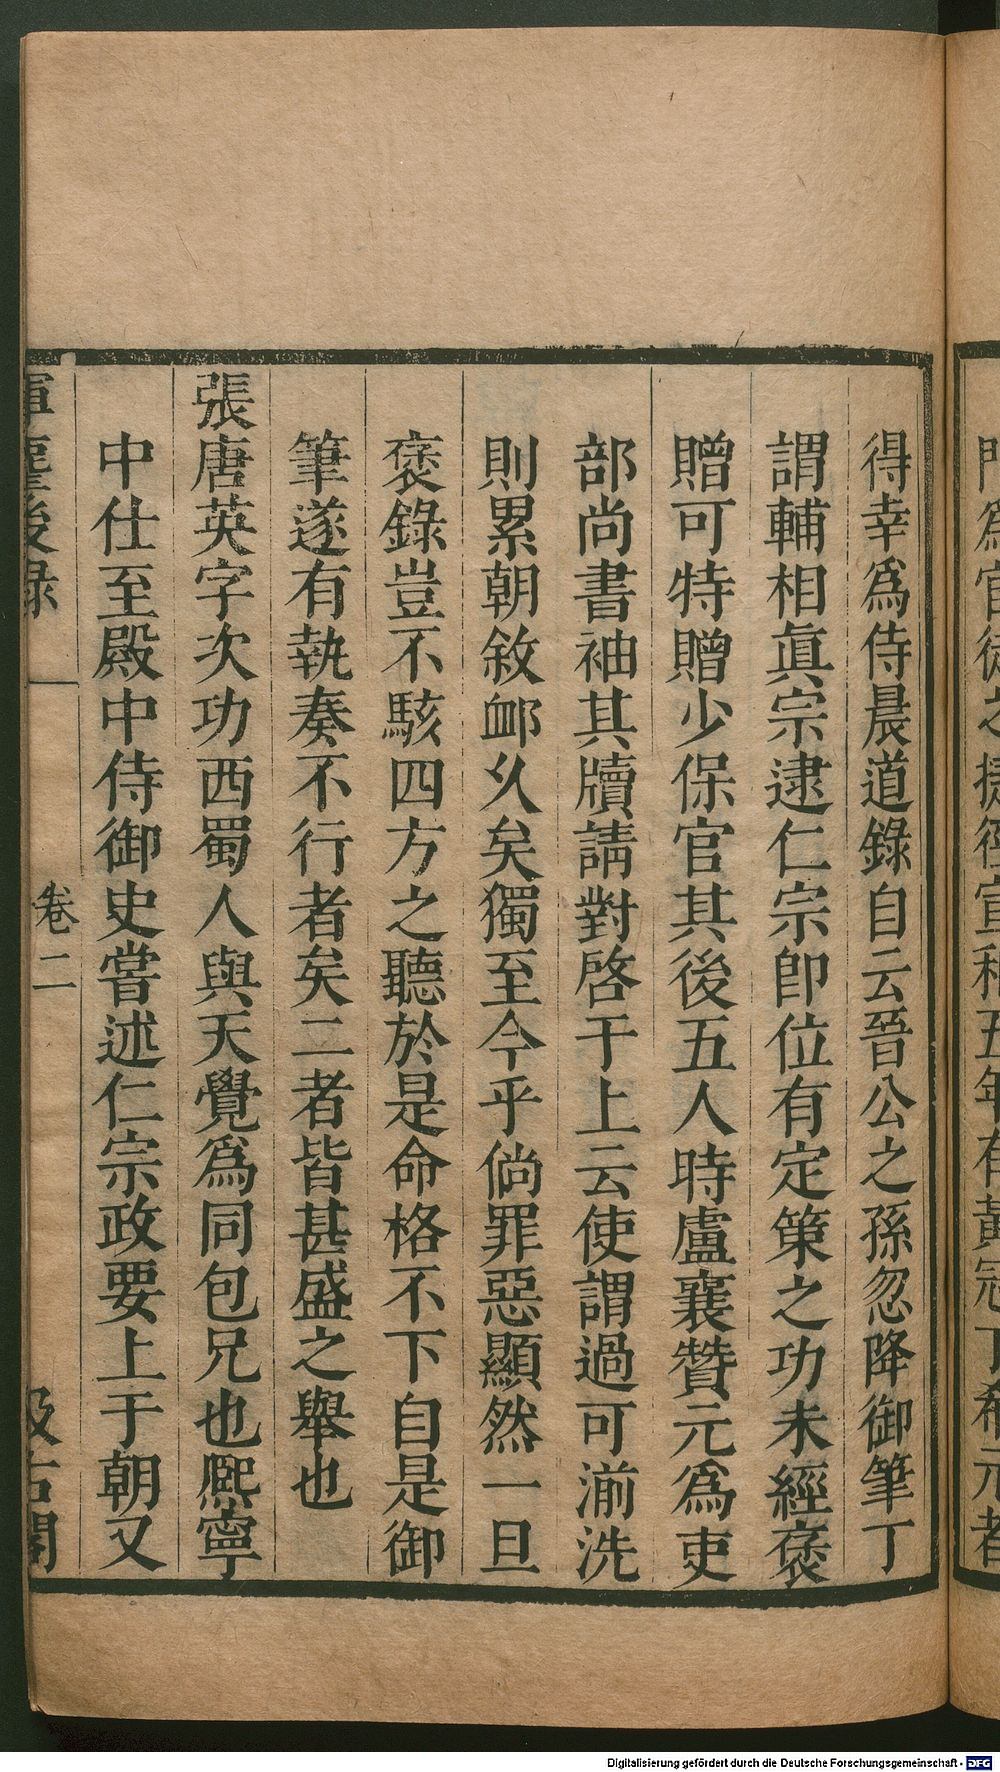 得幸爲侍晨道錄自云晉公之孫忽降御筆丁
謂輔相眞宗逮仁宗卽位有定策之功未經褒
贈可特贈少保官其後五人時盧襄贊元爲吏
部尚書袖其牘請對啓于上云使謂過可湔洗
則累朝敘卹乆矣獨至今乎倘罪惡顯然一旦
褒錄豈不駭四方之聽於是命格不下自是御
筆遂有執奏不行者矣二者皆甚盛之舉也
張唐英字次功西蜀人與天覺爲同包兄也熈寧
中仕至殿中侍御史嘗述仁宗政要上于朝又
後録
卷二
Digitalisierung gefördert durch die Deutsche Forschungsgemeinschaft - DFG